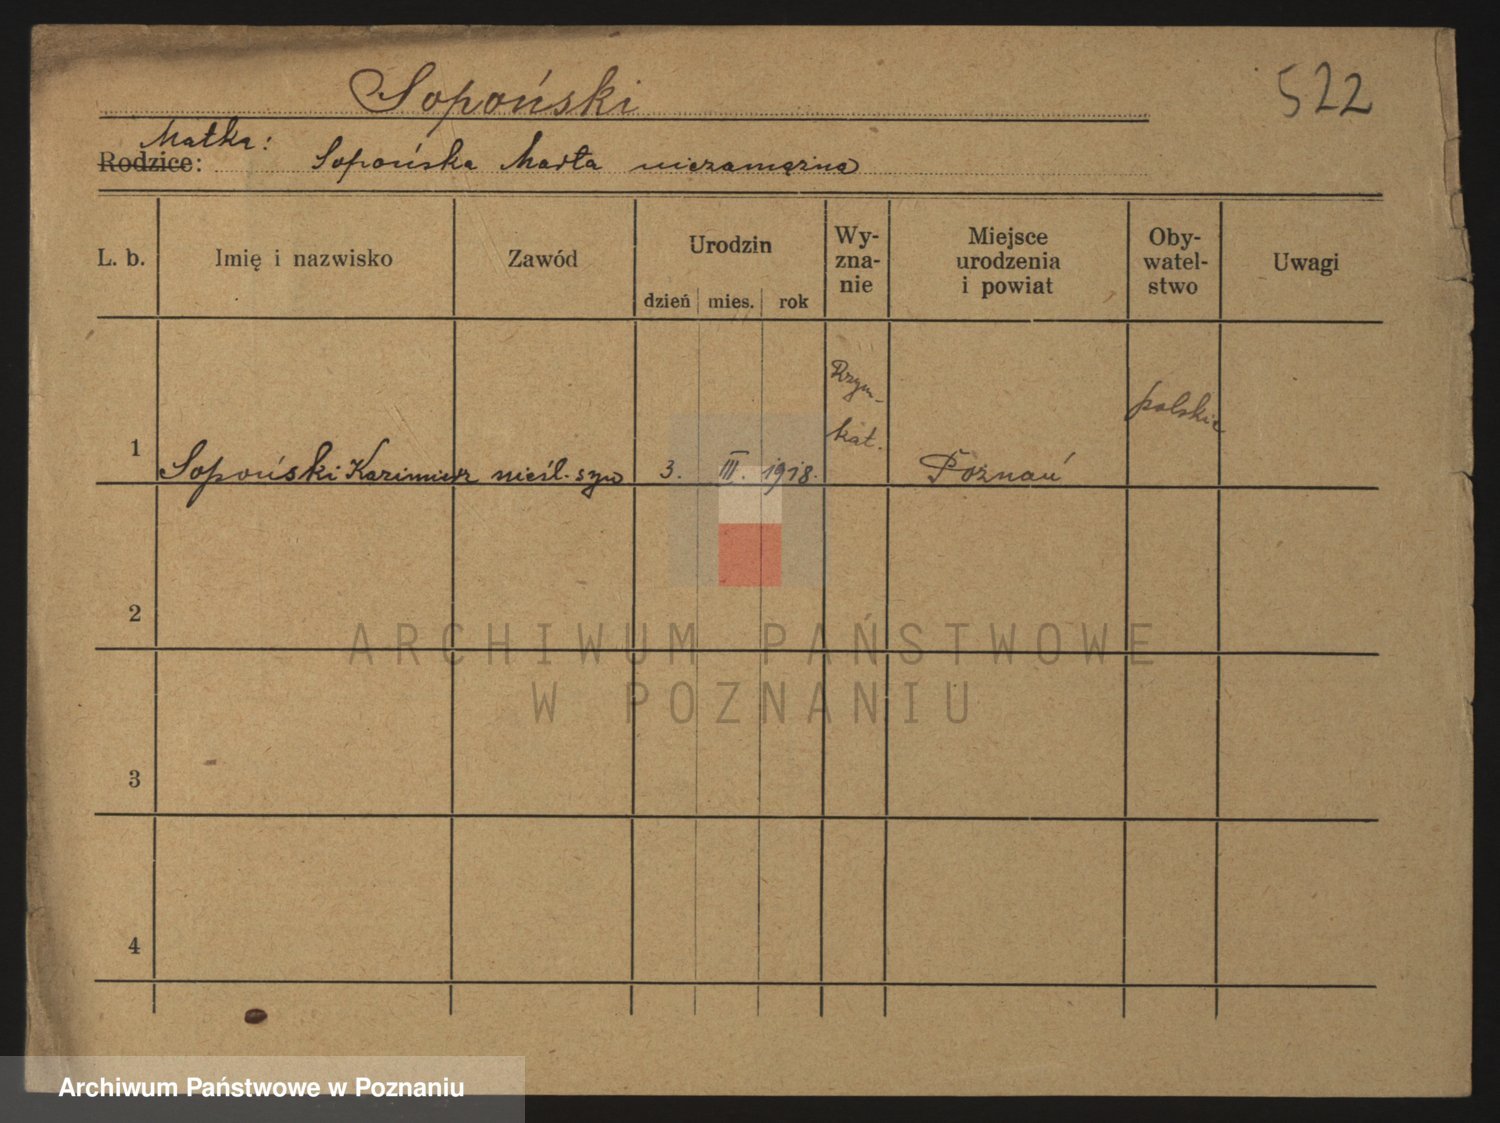 Sopoński
522
Matka:
Rodzice: Sopońska Marta niezamężna
L. b. Imię i nazwisko Zawód Urodzin dzień mies. rok Wy-
zna-
nie Miejsce
urodzenia
i powiat Oby-
watel-
stwo Uwagi
1 Sopoński Kazimierz nieśl. syn 3. III. 1918. Rzym-
kat. Poznań polskie
2
3
4
ARCHIWUM PAŃSTWOWE
W POZNANIU
Archiwum Państwowe w Poznaniu